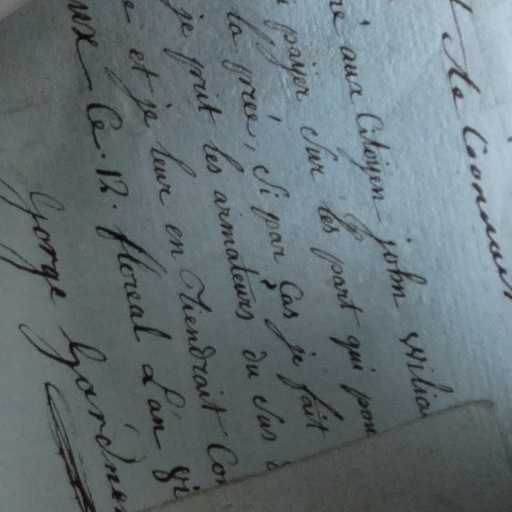 té Connu
né aux Citoyen john wilia
payer sur les part qui pou
la priée, si par Cas je fait
je prit les armateurs du sus
e et je leur en tiendrait Con
ux Ce. 12. floreal L'an
Gorge Gardner